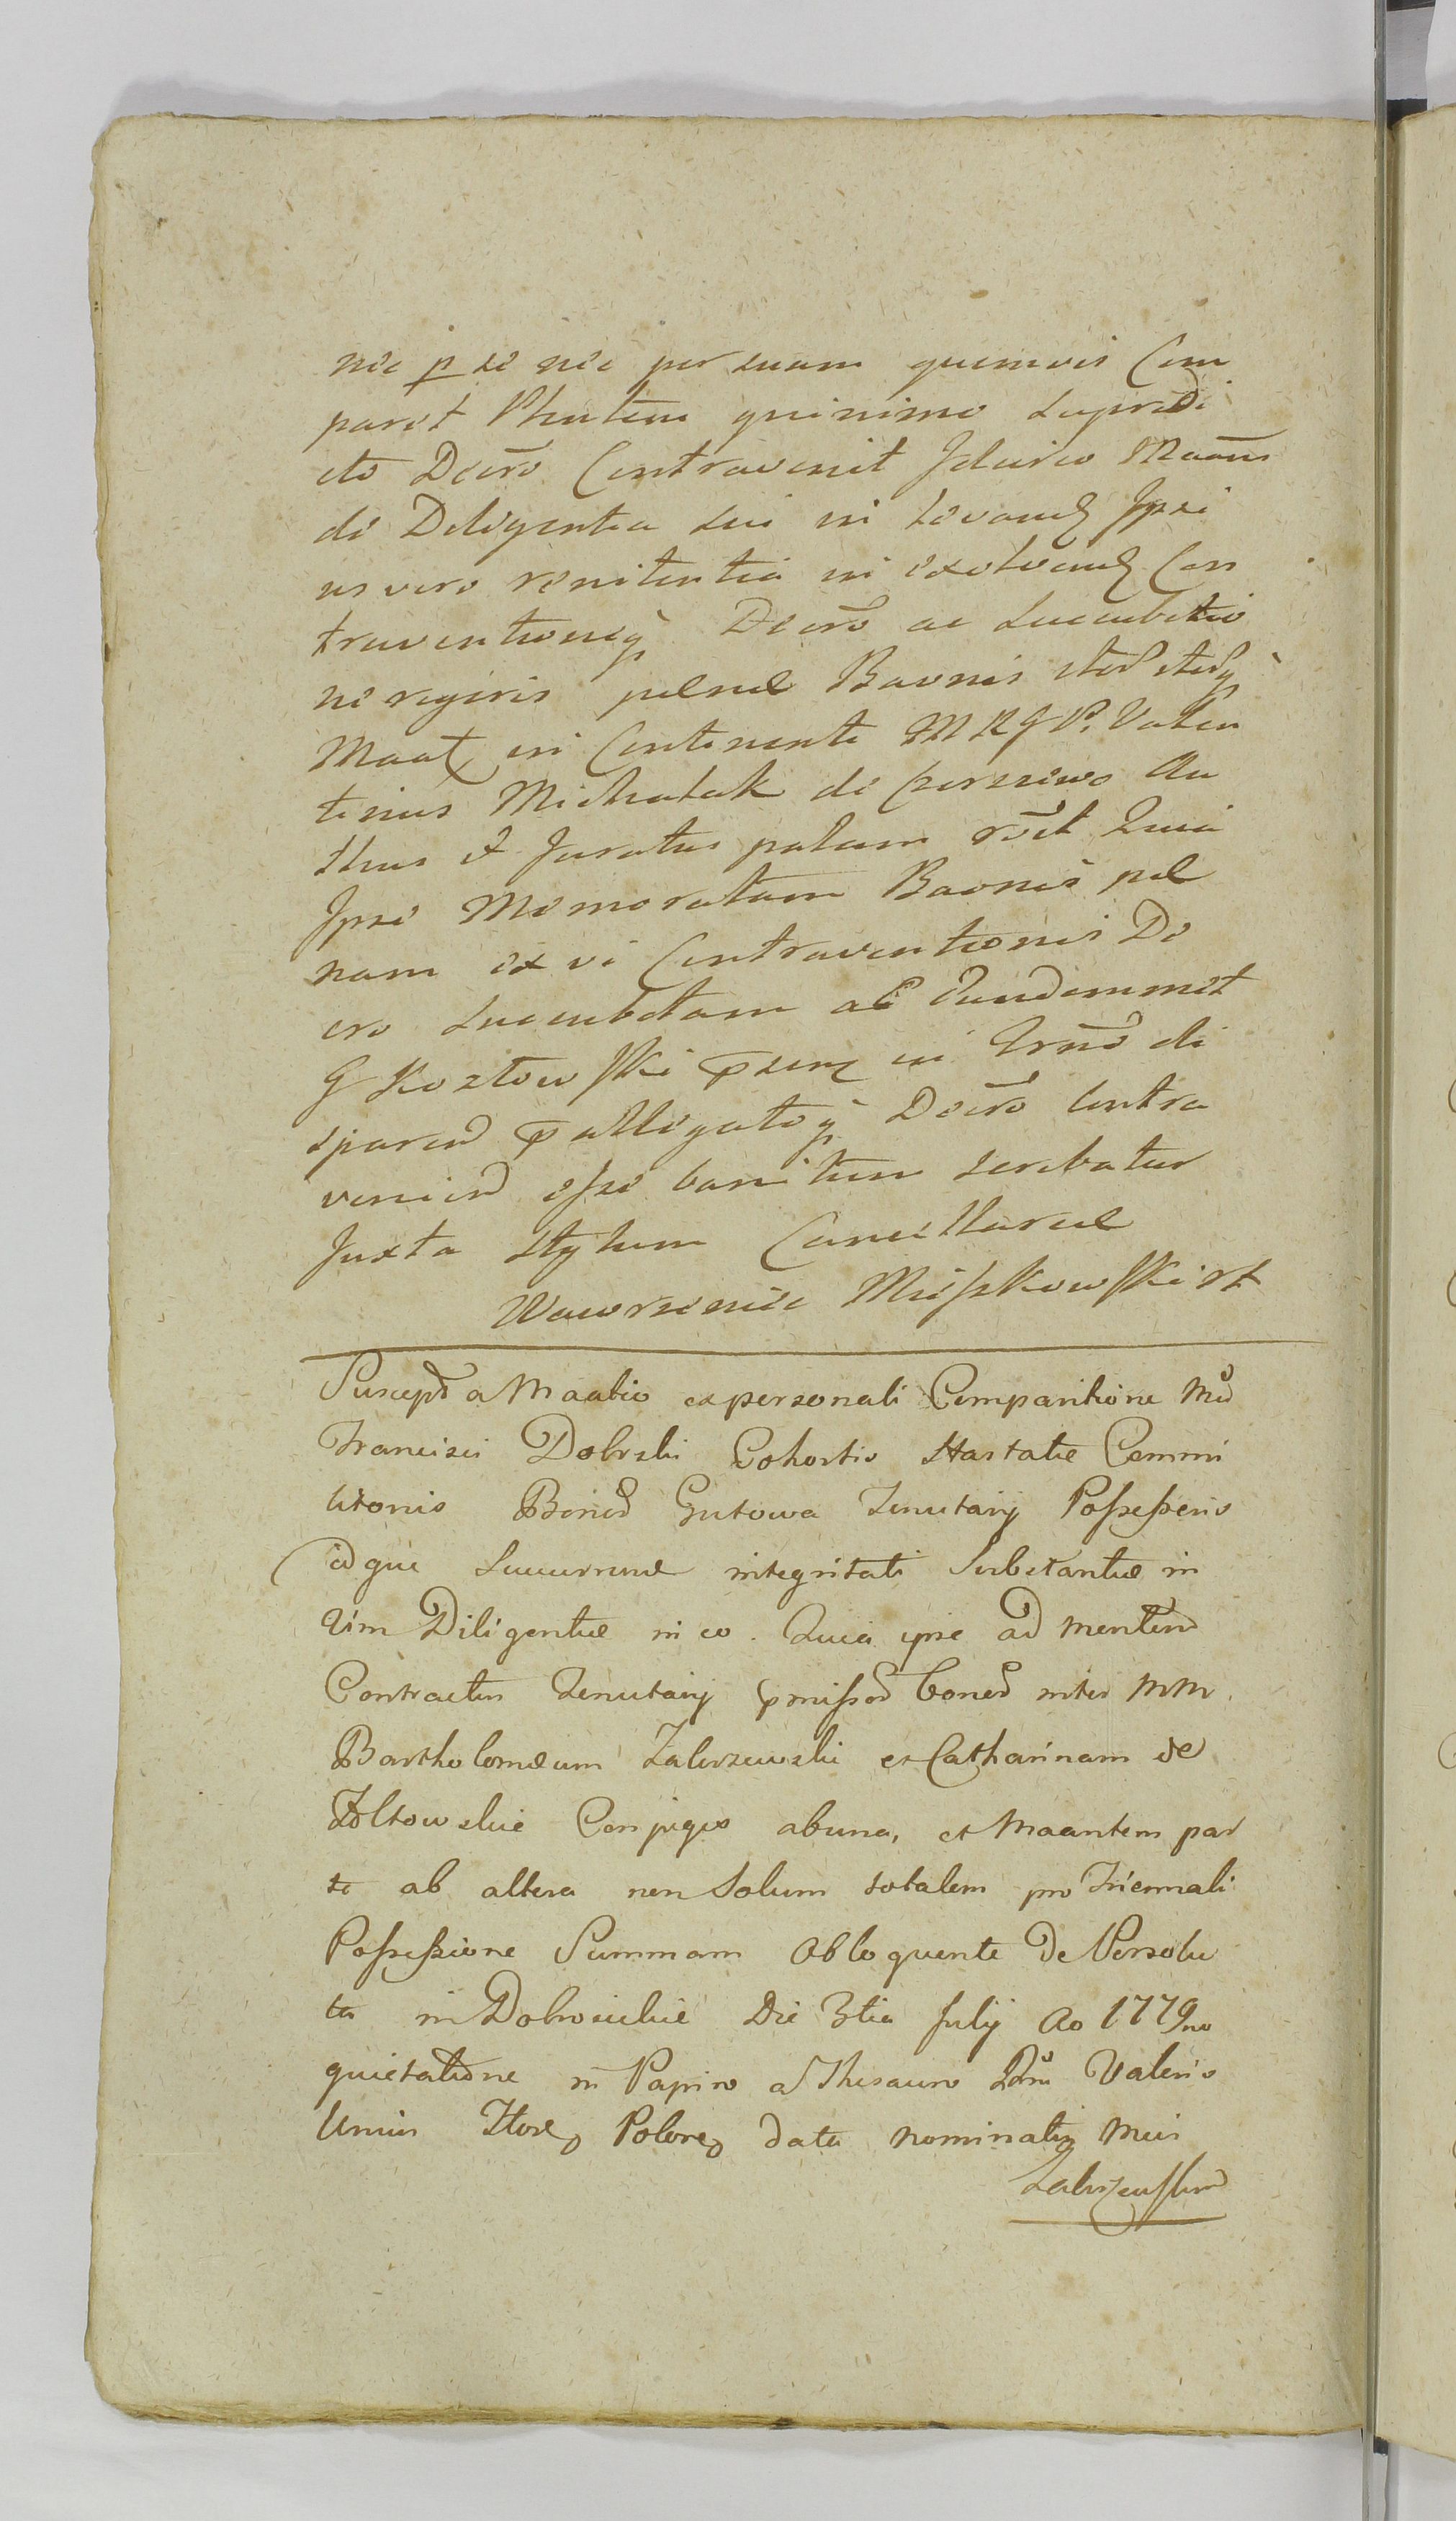 nec p se nec per suam quemvis Com
paret Plentem quinimo supradi
cto Decro Contravenit Idcirco Maans
de Diligentia sui in levand Ipsi
us vero renitentia in exolvend Con
traventioneq Decro ac succubitio
ne regiris pœnæ Baonis
Maat in Continenti M R G P. Valen
tinus Michalak de Czerniewo Au
thus et Juratus palam rvit Quia
Ipse Memoratam Baonis pæ
nam ex vi Contraventionis De
cro succubitam ac eundemmet
G Kozłowski in Trno di
sparen p allegatoq Decro Contra
venien esse banitum scribatur
Juxta stylum Cancellariæ
Wawrzeniec Miszkowski rt
Suscept a Maatio ex personali Comparitione Md
Francisci Dobrski Cohortis Hastatæ Commi
litonis Bonor Gutowa Tenutarij Possessoris
idque succurrend integritati Substantiæ in
Vim Diligentiæ in eo. Quia ipse ad mentem
Contractus Tenutarij pmissor bonor inter MM.
Bartholomæum Zakrzewski et Catharinam de
Żołtowskie Conjuges ab una, et Maantem par
te ab altera non Solum totalem pro Triennali
Possessione Summam abloquente De Persolu
ta in Dobrosielice Die 3tia Julij Ao 1779no
quietatione in Papiro a Thesauro Valoris
Unius Flor Polon data nominatis Meis
Zakrzewskim